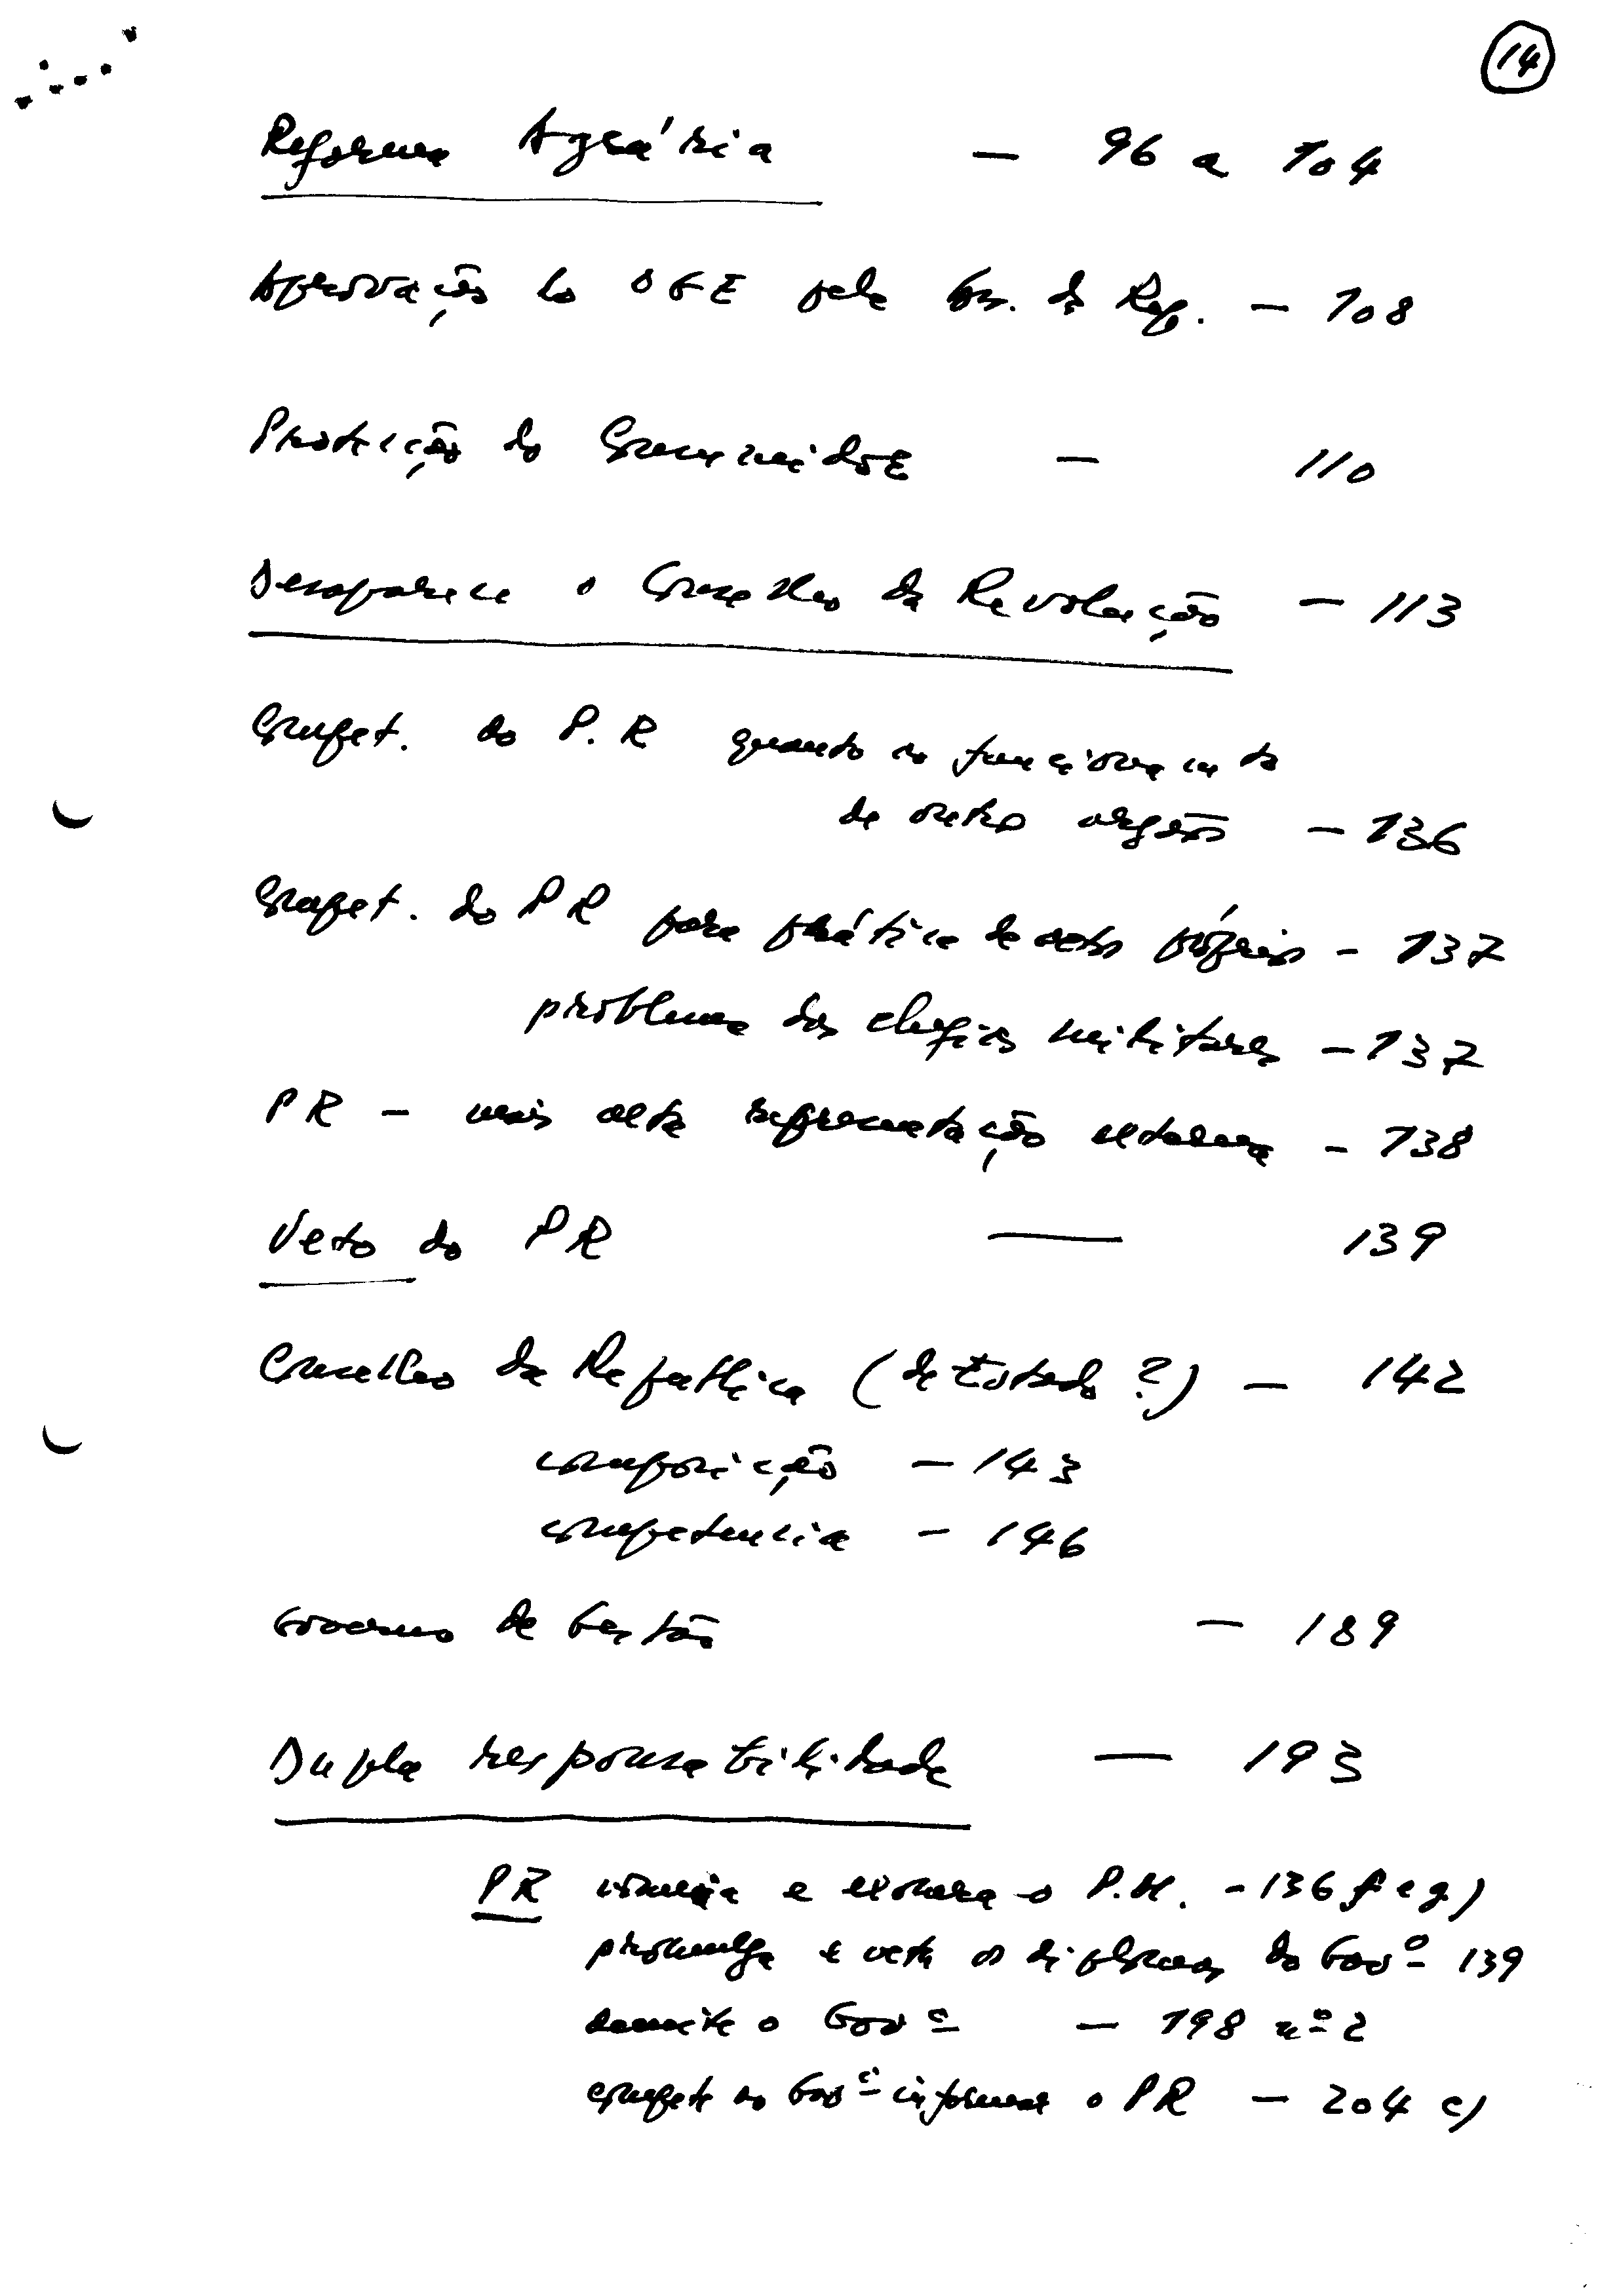 14
Reforma Agrária — 96 a 104
Aprovação do OGE pela da Rep. — 108
Protecção do Consumidor — 110
Desaparece o Conselho da Revolução — 113
Compet. do P.R quanto ao funcionamento
de outros orgãos — 136
Compet. do PR para prática de actos próprios - 137
problema das chefias militares - 137
PR - mais alta representação externa - 138
Veto do PR — 139
Conselho da República (de Estado?) — 142
composição - 143
competência - 146
Governo de Gestão — 189
Dupla responsabilidade — 193
PR nomeia e exonera o P.M. - 136 f e g)
promulga e veta os diplomas do Govº - 139
demite o Govº - 198 nº 2
compete ao Govº informar o PR - 204 c)